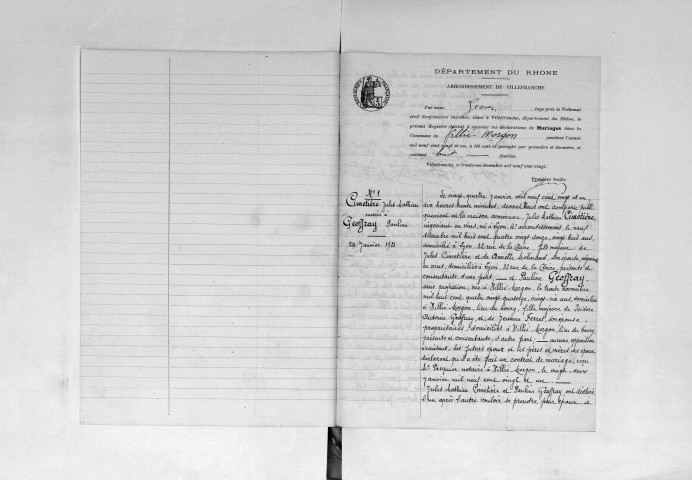 DÉPARTEMENT DU RHONE
ARRONDISSEMENT DE VILLEFRANCHE
Par nous, Juge près le Tribunal
civil de première instance, séant à Villefranche, département du Rhône, le
présent Registre destiné à recevoir les déclarations de Mariages dans la
Commune de Villié-Morgon pendant l'année
mil neuf cent vingt et un, a été coté et paraphé par première et dernière, et
contient huit feuilles.
Villefranche, le trente-un décembre mil neuf cent vingt.
Première feuille
N° 1
Cimetière Jules Mathieu
marié à
Geoffray Pauline
24 Janvier 1921
Le vingt quatre janvier mil neuf cent vingt et un
dix heures trente minutes, devant nous ont comparu publi-
quement en la maison commune, Jules Mathieu Cimetière,
négociant en vins, né à Lyon, arrondissement, le neuf
décembre mil huit cent quatre vingt douze, vingt huit ans,
domicilié à Lyon, 32 rue de la Claire, fils majeur de
Jules Cimetière et de son épouse, négociants
en vins, domiciliés à Lyon, 32 rue de la Claire, présents et
consentants d'une part; et Pauline Geoffray,
sans profession, née à Villié-Morgon, le trente novembre
mil huit cent quatre vingt quatorze, vingt six ans, domiciliée
à Villié-Morgon, lieu du bourg, fille majeure de Isidore
Antoine Geoffray et de Jeanne Ferret, son épouse,
propriétaires, domiciliés à Villié-Morgon, lieu du bourg
présents et consentants, d'autre part; aucune opposition
existant, les futurs époux et les pères et mères des époux
déclarent qu'il a été fait un contrat de mariage, reçu
Me Pasquier notaire à Villié-Morgon, le vingt-deux
janvier mil neuf cent vingt et un.
Jules Mathieu Cimetière et Pauline Geoffray ont déclaré
l'un après l'autre vouloir se prendre pour époux et